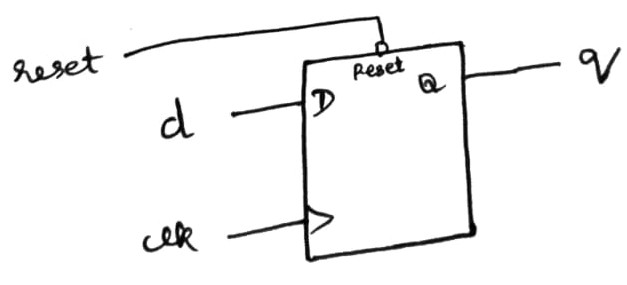 reset
Reset
Q
q
d
D
clk